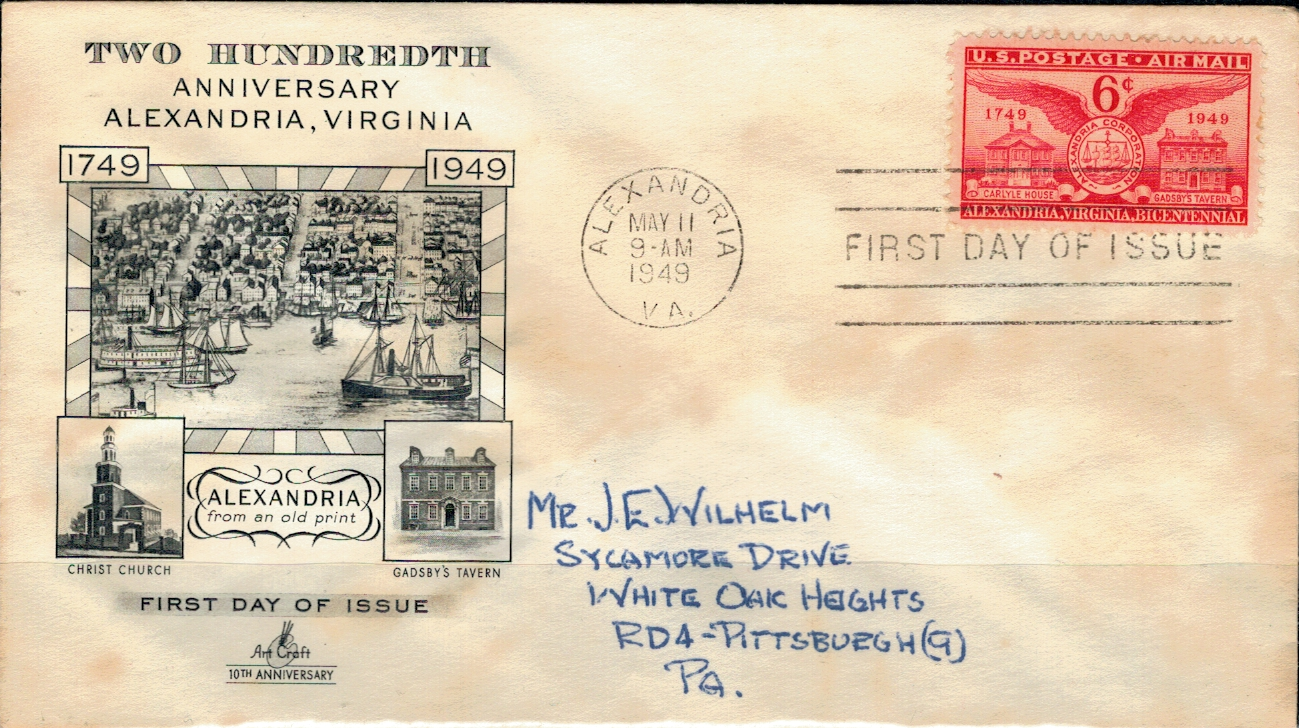 TWO HUNDREDTH
ANNIVERSARY
ALEXANDRIA, VIRGINIA
1749
1949
ALEXANDRIA
from an old print
CHRIST CHURCH
GADSBY'S TAVERN
FIRST DAY OF ISSUE
Art Craft
10TH ANNIVERSARY
ALEXANDRIA
MAY 11
9-AM
1949
VA.
U.S. POSTAGE · AIR MAIL
6¢
1749
1949
ALEXANDRIA CORPORATION
CARLYLE HOUSE
GADSBY'S TAVERN
ALEXANDRIA, VIRGINIA, BICENTENNIAL
FIRST DAY OF ISSUE
MR. J.E. WILHELM
SYCAMORE DRIVE
WHITE OAK HEIGHTS
RD4-PITTSBURGH(9)
PA.